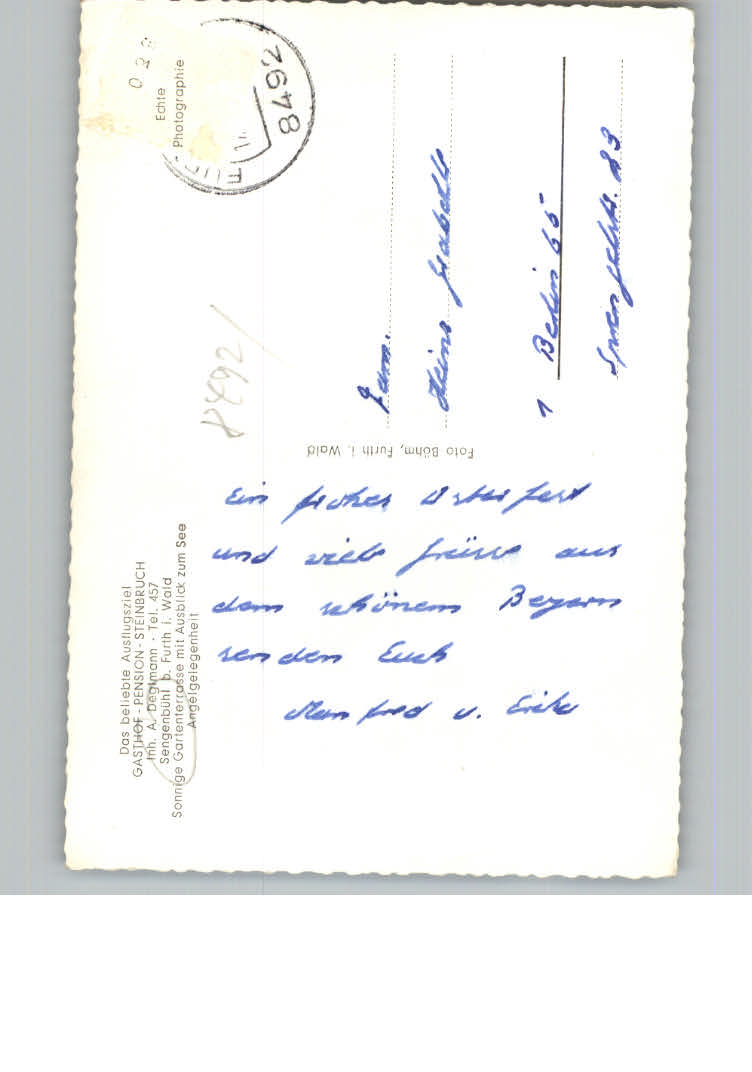 Das beliebte Ausflugsziel
GASTHOF - PENSION - STEINBRUCH
Inh. A. Deglmann · Tel. 457
Sengenbühl b. Furth i. Wald
Sonnige Gartenterrasse mit Ausblick zum See
Angelgelegenheit
Ein frohes Osterfest
und viele Grüsse aus
dem schönem Bayern
senden Euch
Manfred u. Erika
Foto Böhm, Furth i. Wald
Echte
Photographie
8492
8492
Fam.
Heinz
1 Berlin 65